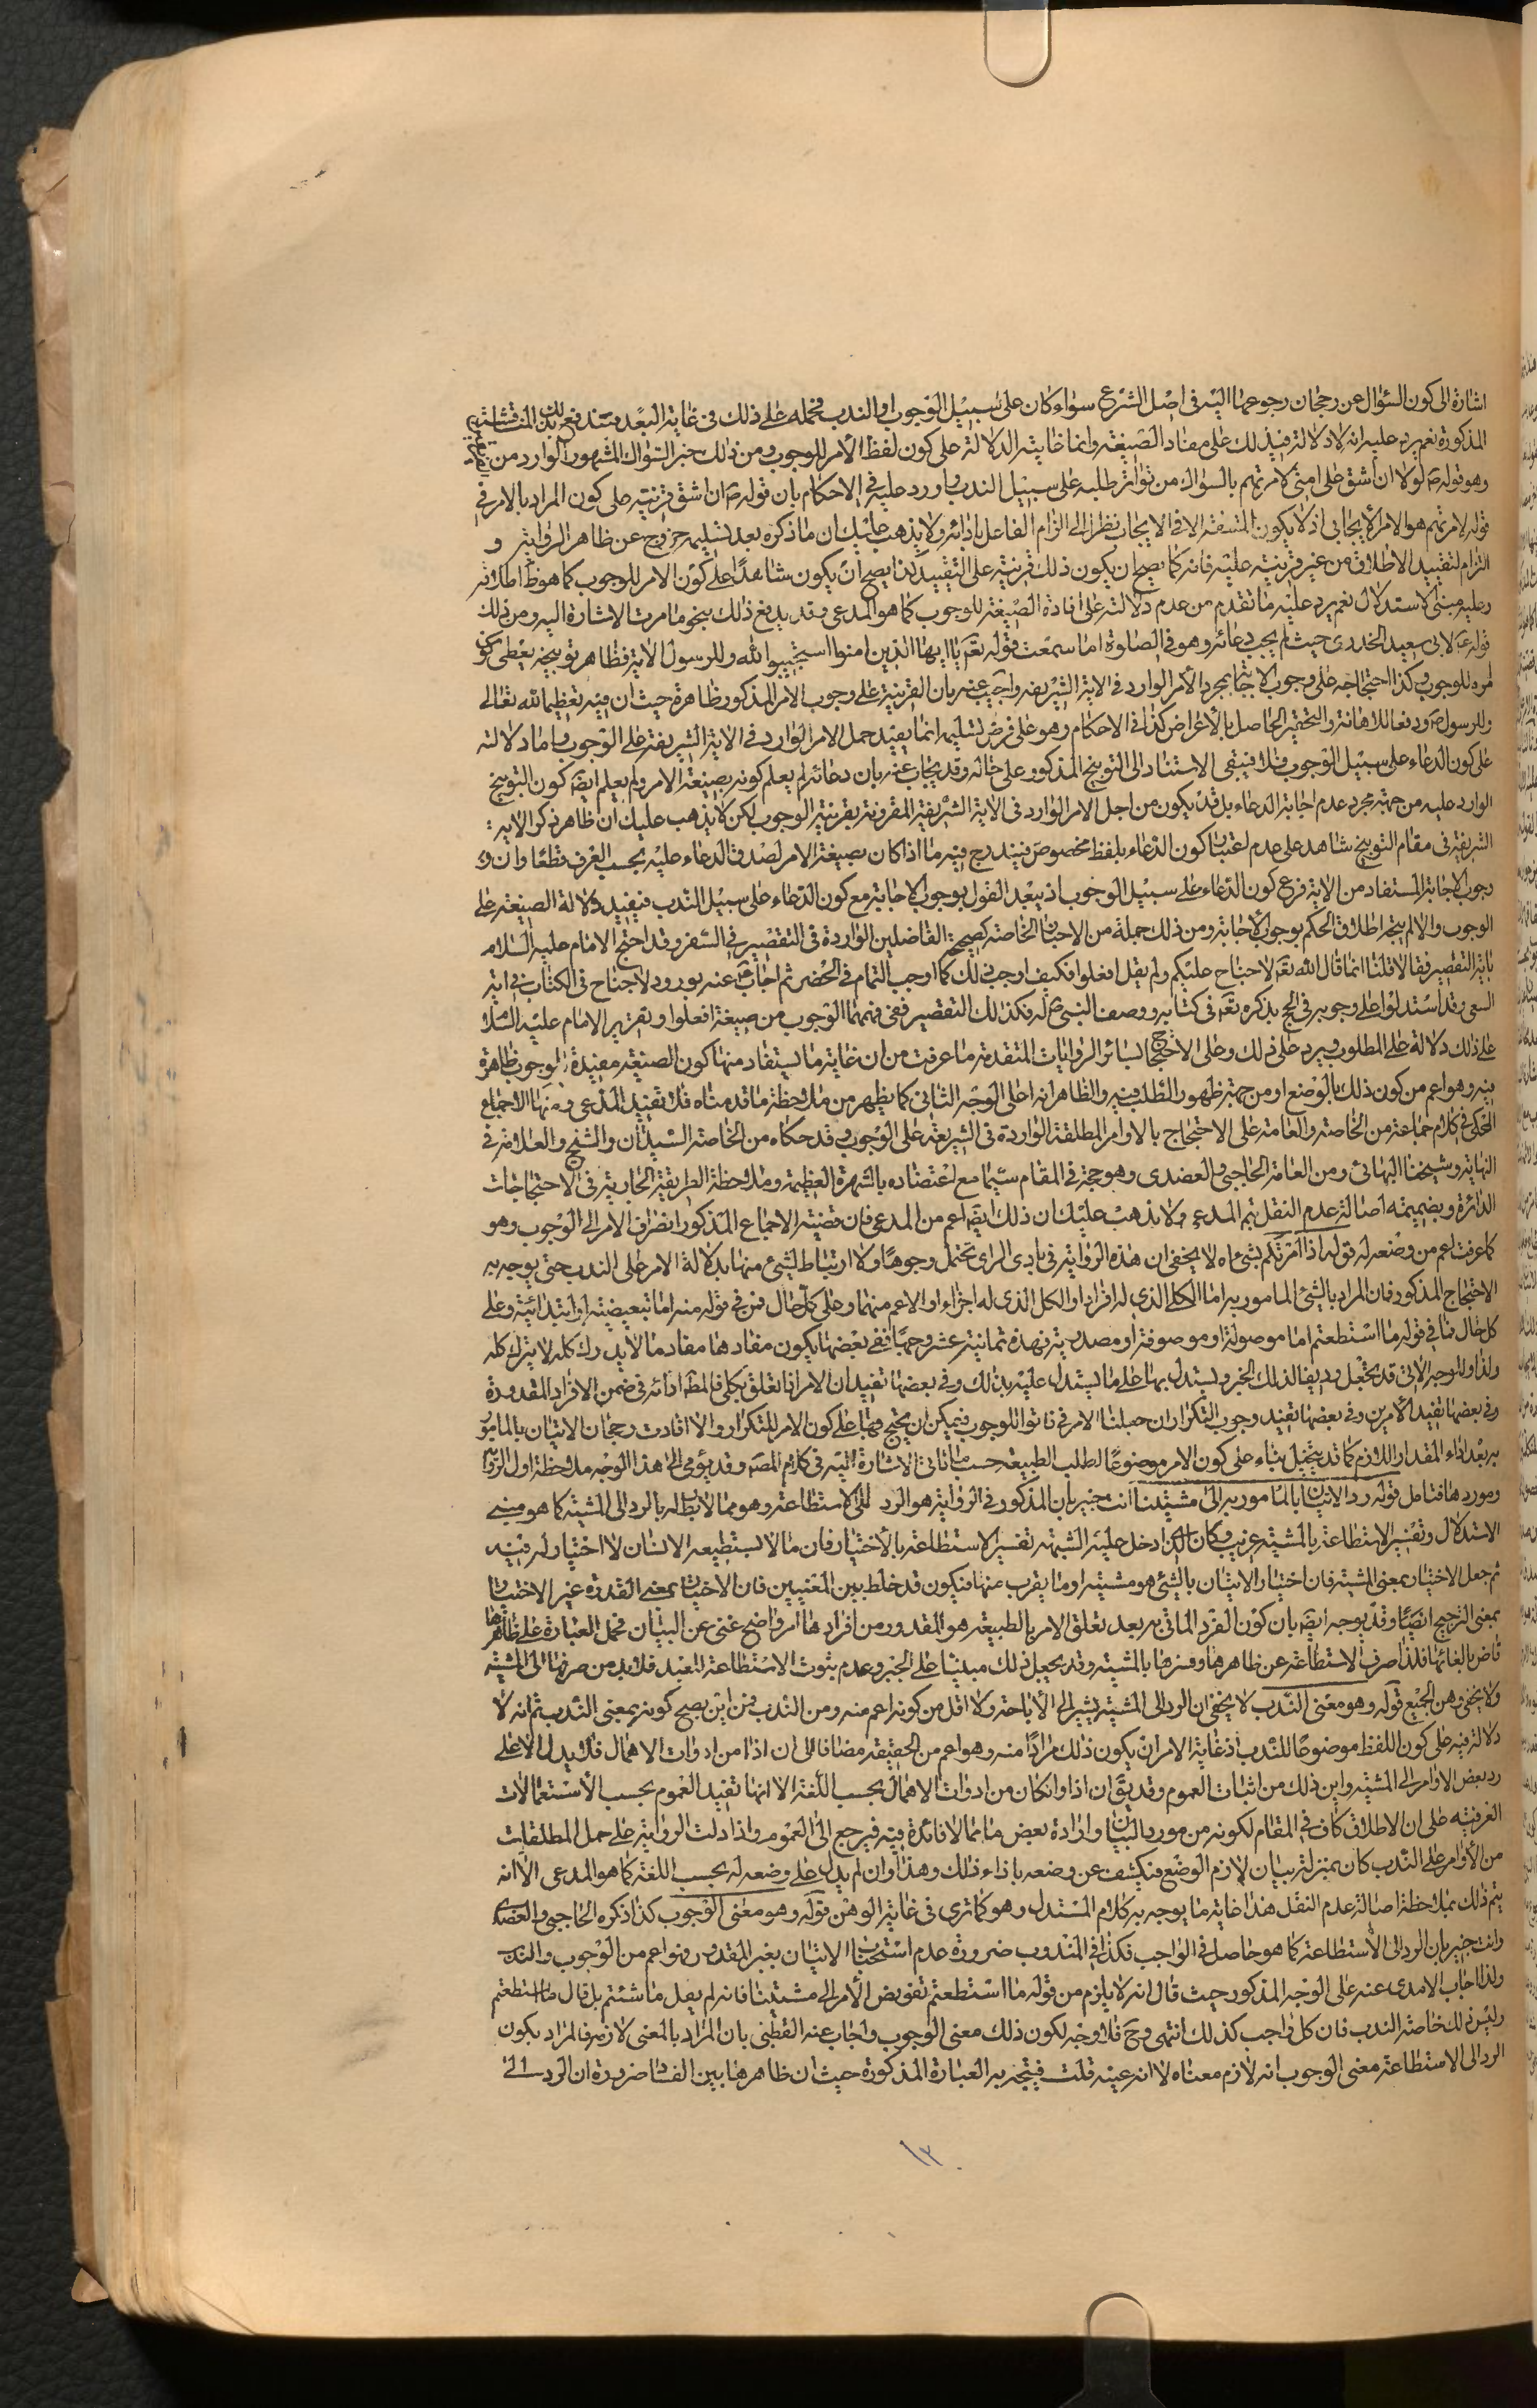 اشارة الى كون السؤال عن رجحان رجوعها اليه فى اصل الشرع سواء كان على سبيل الوجوب او الندب فحمله على ذلك فى غاية البعد فتندفع بذلك المناقشة
المذكورة نعم يرد عليه انه لا دلالة فيذلك على مفاد الصيغة وانما غايته الدلالة على كون لفظ الأمر للوجوب ومن ذلك خبر السؤال المشهور الوارد من
وهو قوله ص لولا ان اشق على امتى لامرتهم بالسواك من تواتر طلبه على سبيل الندب واورد عليه فى الاحكام بان قوله ص ان اشق قرينة على كون المراد بالامر فى
قوله لامرتهم هو الامر الايجابى اذ لا يكون المشقة الا فى الايجاب نظرا الى الزام الفاعل بادائه ولا يذهب عليك ان ما ذكره بعد تسليمه خروج عن ظاهر الرواية و
التزام لتقييد الاطلاق من غير قرينة عليه فانه كما يصح ان يكون ذلك قرينة على التقييد كذا يصح ان يكون شاهدا على كون الامر للوجوب كما هو ظ اطلاقه
وعليه مبنى الاستدلال نعم يرد عليه ما تقدم من عدم دلالته على افادة الصيغة للوجوب كما هو المدعى وقد يدفع ذلك بنحو ما مرت الاشارة اليه ومن ذلك
قوله ع لابى سعيد الخدرى حيث لم يجب دعائه وهو فى الصلوة اما سمعت قوله تعم يا ايها الذين امنوا استجيبوا لله وللرسول الاية فظاهر توبيخه يعطى كون
امره للوجوب وكذا احتجاجه على وجوب الاجابة بمجرد الأمر الوارد فى الاية الشريفة واجيب عنه بان القرينة على وجوب الأمر المذكور ظاهرة حيث ان فيه تعظيما لله تعالى
وللرسول ص ودفعا للاهانة والتحقير الحاصل بالأعراض كذا فى الاحكام وهو على فرض تسليمه انما يفيد حمل الامر الوارد فى الاية الشريفة على الوجوب واما دلالته
على كون الدعاء على سبيل الوجوب فلا فيبقى الاستناد الى التوبيخ المذكور على حاله وقد يجاب عنه بان دعائه لم يعلم كونه بصيغة الامر ولم يعلم ايضا كون التوبيخ
الوارد عليه من جهة مجرد عدم اجابة الدعاء بل قد يكون من اجل الامر الوارد فى الاية الشريفة المقرونة بقرينة الوجوب لكن لا يذهب عليك ان ظاهر ذكر الاية
الشريفة فى مقام التوبيخ شاهد على عدم اعتبار كون الدعاء بلفظ مخصوص فيندرج فيه ما اذا كان بصيغة الامر لصدق الدعاء عليه بحسب العرف قطعا وان
وجوب الاجابة المستفاد من الاية فرع كون الدعاء على سبيل الوجوب اذ يبعد القول بوجوب الاجابة مع كون الدعاء على سبيل الندب فيفيد دلالة الصيغة على
الوجوب والا لم يتجه اطلاق الحكم بوجوب الاجابة ومن ذلك جملة من الاخبار الخاصة كصحيحة الفاضلين الواردة فى التقصير فى السفر وقد احتج الامام عليه السلام
باية التقصير فقالا قلنا انما قال الله تعم لا جناح عليكم ولم يقل افعلوا فكيف اوجب ذلك كما اوجب التمام فى الحضر ثم اجاب ع عنه بورود لا جناح فى الكتاب فى اية
السعى وقد استدلوا على وجوبه فى الحج بذكره تعم فى كتابه ووصف النبى ص له فكذلك التقصير ففى فهمهما الوجوب من صيغة افعلوا وتقرير الامام عليه السلام
على ذلك دلالة على المطلوب ويرد على ذلك وعلى الاحتجاج بسائر الروايات المتقدمة ما عرفت من ان غاية ما يستفاد منها كون الصيغة مفيدة للوجوب ظاهرة
فيه وهو اعم من كون ذلك بالوضع او من جهة ظهور الطلب فيه والظاهر انها على الوجه الثانى كما يظهر من ملاحظة ما قدمناه فلا تفيد المدعى ومنها الاجماع
المحكى فى كلام جماعة من الخاصة والعامة على الاحتجاج بالاوامر المطلقة الواردة فى الشريعة على الوجوب وقد حكاه من الخاصة السيدان والشيخ والعلامة فى
النهاية وشيخنا البهائى ومن العامة الحاجبى والعضدى وهو حجة فى المقام سيما مع اعتضاده بالشهرة العظيمة وملاحظة الطريقة الجارية فى الاحتجاجات
الدائرة وبضميمة اصالة عدم النقل يتم المدعى ولا يذهب عليك ان ذلك ايضا اعم من المدعى فان قضية الاجماع المذكور انصراف الامر الى الوجوب وهو
كما عرفت اعم من وضعه له قوله اذا امرتكم بشئ اه لا يخفى ان هذه الرواية فى بادى الراى تحتمل وجوها ولا ارتباط لشئ منها بدلالة الامر على الندب حتى يوجه به
الاحتجاج المذكور فان المراد بالشئ المامور به اما الكلى الذى له افراد او الكل الذى له اجزاء او الاعم منهما وعلى كل حال فمن فى قوله منه اما تبعيضية او ابتدائية وعلى
كل حال فما فى قوله ما استطعتم اما موصولة او موصوفة او مصدرية فهذه ثمانية عشر وجها ففى بعضها يكون مفادها مفاد ما لا يدرك كله لا يترك كله
ولذا والوجه الاتى قد يجعل رديفا لذلك الخبر ويستدل بها على ما يستدل عليه بذلك وفى بعضها تفيد ان الامر اذا تعلق بكلى فالمط ادائه فى ضمن الافراد المقدورة
وفى بعضها تفيد الأمرين وفى بعضها تفيد وجوب التكرار ان جعلنا الامر فى فاتوا للوجوب فيمكن ان يحتج بها على كون الامر للتكرار والا افادت رجحان الاتيان بالمامور
به بعد اداء المقدار اللازم كما قد يتخيل بناء على كون الامر موضوعا لطلب الطبيعة حسب ما تاتى الاشارة اليه فى كلام المصه وقد يؤمى الى هذا الوجه ملاحظة اول الرواية
وموردها فتامل قوله رد الاتيان بالمامور به الى مشيتنا انت خبير بان المذكور فى الرواية هو الرد الى الاستطاعة وهو مما لا ربط له بالرد الى المشية كما هو مبنى
الاستدلال وتفسير الاستطاعة بالمشية غريب وكان الذى ادخل عليه الشبهة تفسير الاستطاعة بالأختيار فان ما لا يستطيعه الانسان لا اختيار له فيه
ثم جعل الاختيار بمعنى المشية فان اختيار الاتيان بالشئ هو مشيته او ما يقرب منها فيكون قد خلط بين المعنيين فان الاختيار بمعنى القدرة غير الاختيار
بمعنى الترجيح ايضا وقد يوجه ايضا بان كون الفرد الماتى به بعد تعلق الامر بالطبيعة هو المقدور من افرادها امر واضح غنى عن البيان فحمل العبارة على ظاهرها
قاض بالغائها فلذا صرف الاستطاعة عن ظاهرها وفسرها بالمشية وقد يجعل ذلك مبنيا على الجبر وعدم ثبوت الاستطاعة للعبد فلا بد من صرفها الى المشية
ولا يخفى وهن الجميع قوله وهو معنى الندب لا يخفى ان الرد الى المشية يشير الى الأباحة ولا اقل من كونه اعم منه ومن الندب فمن اين يصح كونه بمعنى الندب ثم انه لا
دلالة فيه على كون اللفظ موضوعا للندب اذ غاية الامر ان يكون ذلك مرادا منه وهو اعم من الحقيقة مضافا الى ان اذا من ادوات الاهمال فلا يدل الا على
رد بعض الاوامر الى المشية واين ذلك من اثبات العموم وقد يق ان اذا وان كان من ادوات الاهمال بحسب اللغة الا انها تفيد العموم بحسب الأستعمالات
العرفية على ان الاطلاق كاف فى المقام لكونه من مورد البيان وارادة بعض ما مما لا فائدة فيه فيرجع الى العموم واذا دلت الرواية على حمل المطلقات
من الأوامر على الندب كان بمنزلة بيان لازم الوضع فيكشف عن وضعه باذاء ذلك وهذا وان لم يدل على وضعه له بحسب اللغة كما هو المدعى الا انه
يتم ذلك بملاحظة اصالة عدم النقل هذا غاية ما يوجه به كلام المستدل وهو كما ترى فى غاية الوهن قوله وهو معنى الوجوب كذا ذكره الحاجبى والعضدى
وانت خبير بان الرد الى الأستطاعة كما هو حاصل فى الواجب فكذا فى المندوب ضرورة عدم استحباب الاتيان بغير المقدور فهو اعم من الوجوب والندب
ولذا اجاب الامدى عنه على الوجه المذكور حيث قال انه لا يلزم من قوله ما استطعتم تفويض الأمر الى مشيتنا فانه لم يقل ما شئتم بل قال ما استطعتم
وليس ذلك خاصة الندب فان كل واجب كذلك انتهى وح فلا وجه لكون ذلك معنى الوجوب واجاب عنه القطبى بان المراد بالمعنى لازمه فالمراد بكون
الرد الى الاستطاعة معنى الوجوب انه لازم معناه لا انه عينه قلت فيتجه به العبارة المذكورة حيث ان ظاهرها بين الفساد ضرورة ان الرد الى
١٢